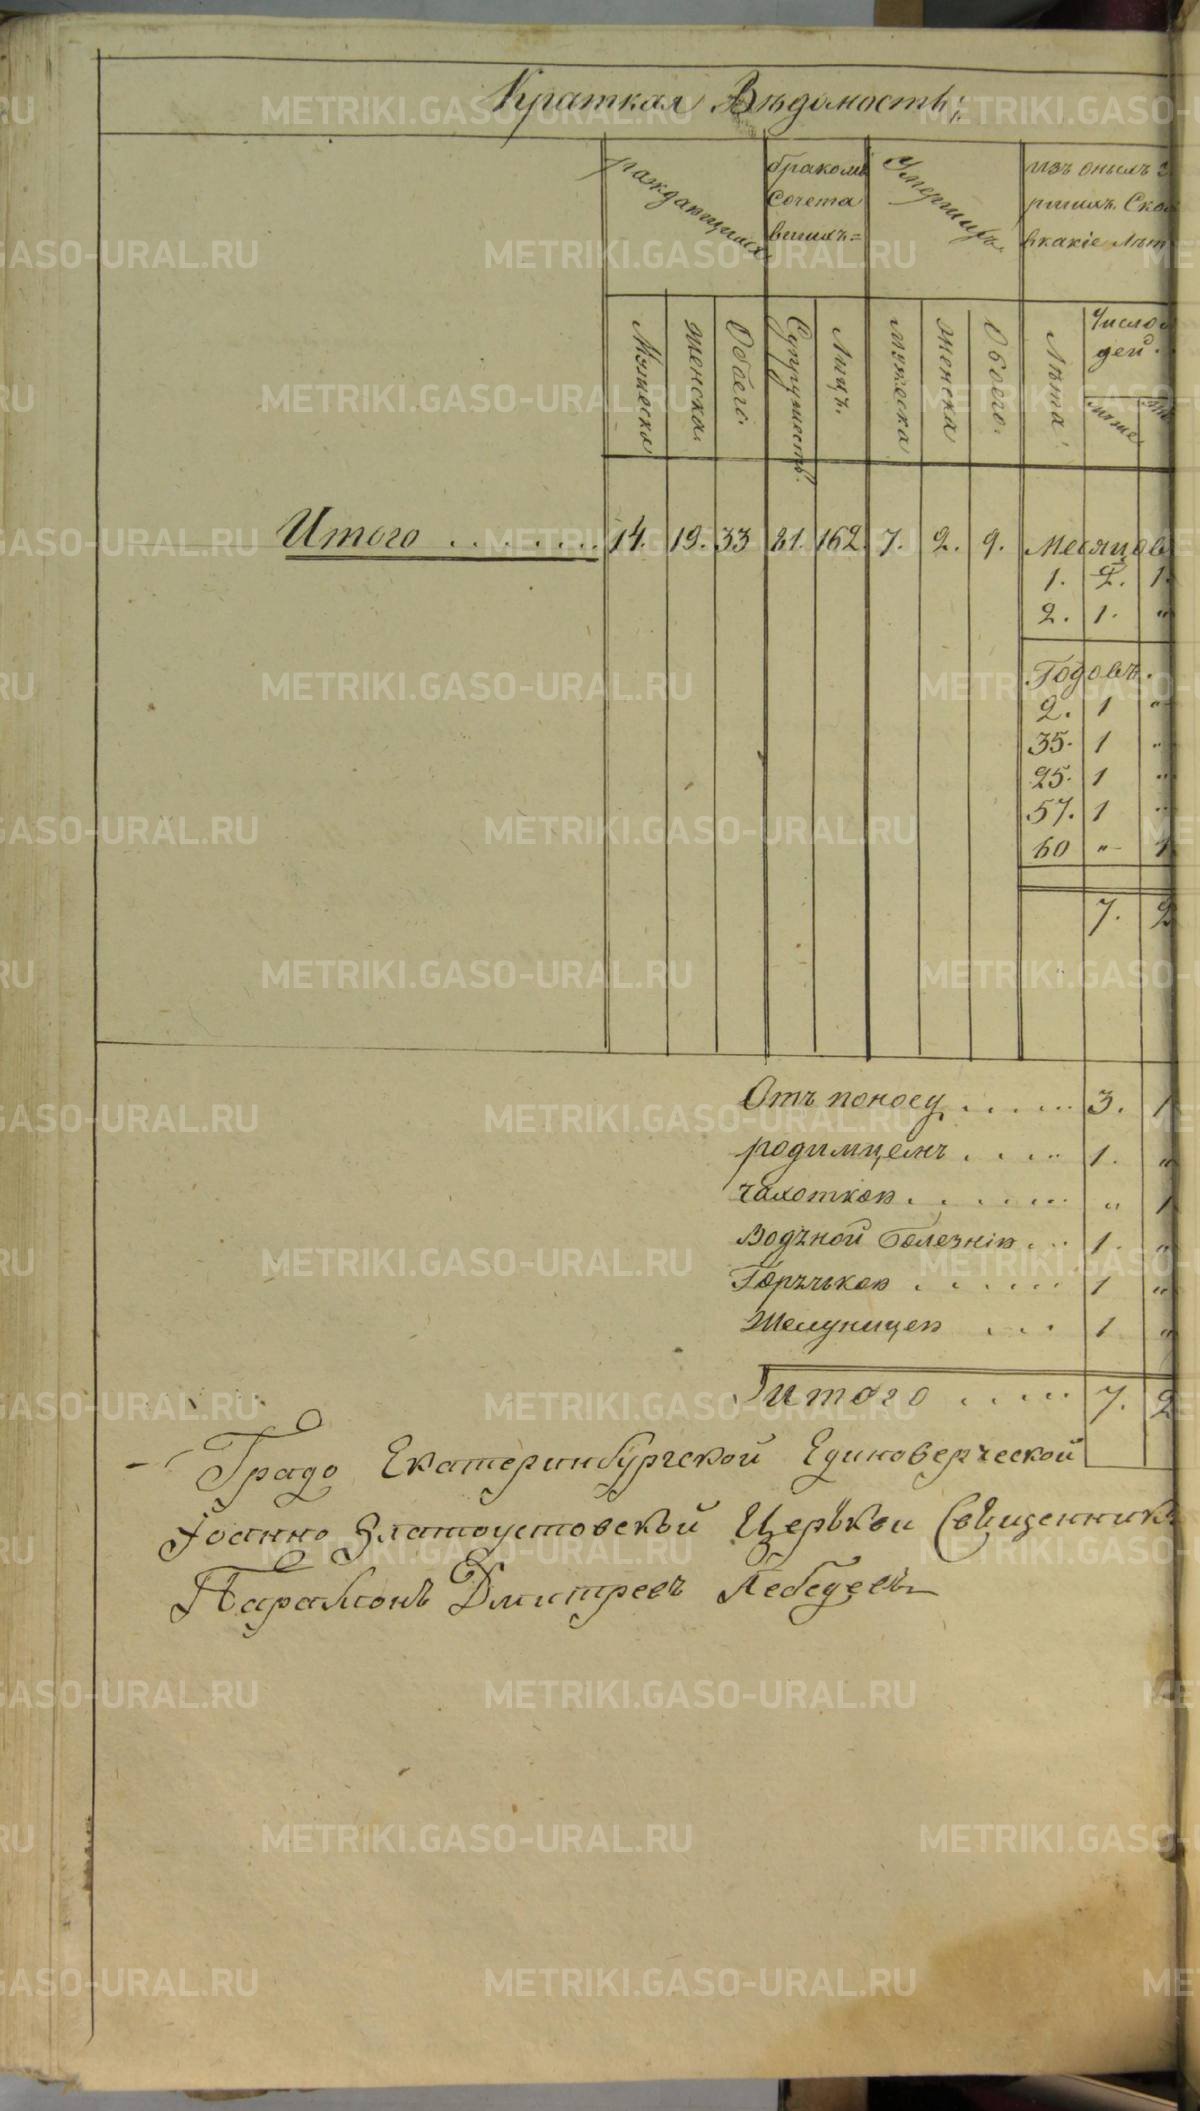 Краткая Вѣдомость;
раждающихся
бракомъ
Сочета
вшихъ=
Умершихъ
изъ оныхъ
ршихъ. Ско
вкакіе лѣт
Мужеска
женска.
Обоего.
Супружествъ.
Лицъ.
мужеска
женска
Обоего.
Лѣта
Число
дей.
муже.
Итого ........ 14. 19. 33 81. 162. 7. 2. 9. Месяцов
1. 2. 1.
2. 1. "
Годовъ.
2. 1 "
35. 1 "
25. 1 "
57. 1 "
60 " 1
7. 2
Отъ поносу ...... 3. 1
родимцемъ .... 1. "
чахоткой ...... " 1
Водъной болезнію ... 1. "
Горячькой ...... 1 "
Желуницей ... 1 "
Итого ..... 7. 2
Градо Екатеринбургской Единоверческой
Іоанно Златоустовской Церькви Священникъ
Парамонъ Дмитревъ Лебедевъ
METRIKI.GASO-URAL.RU